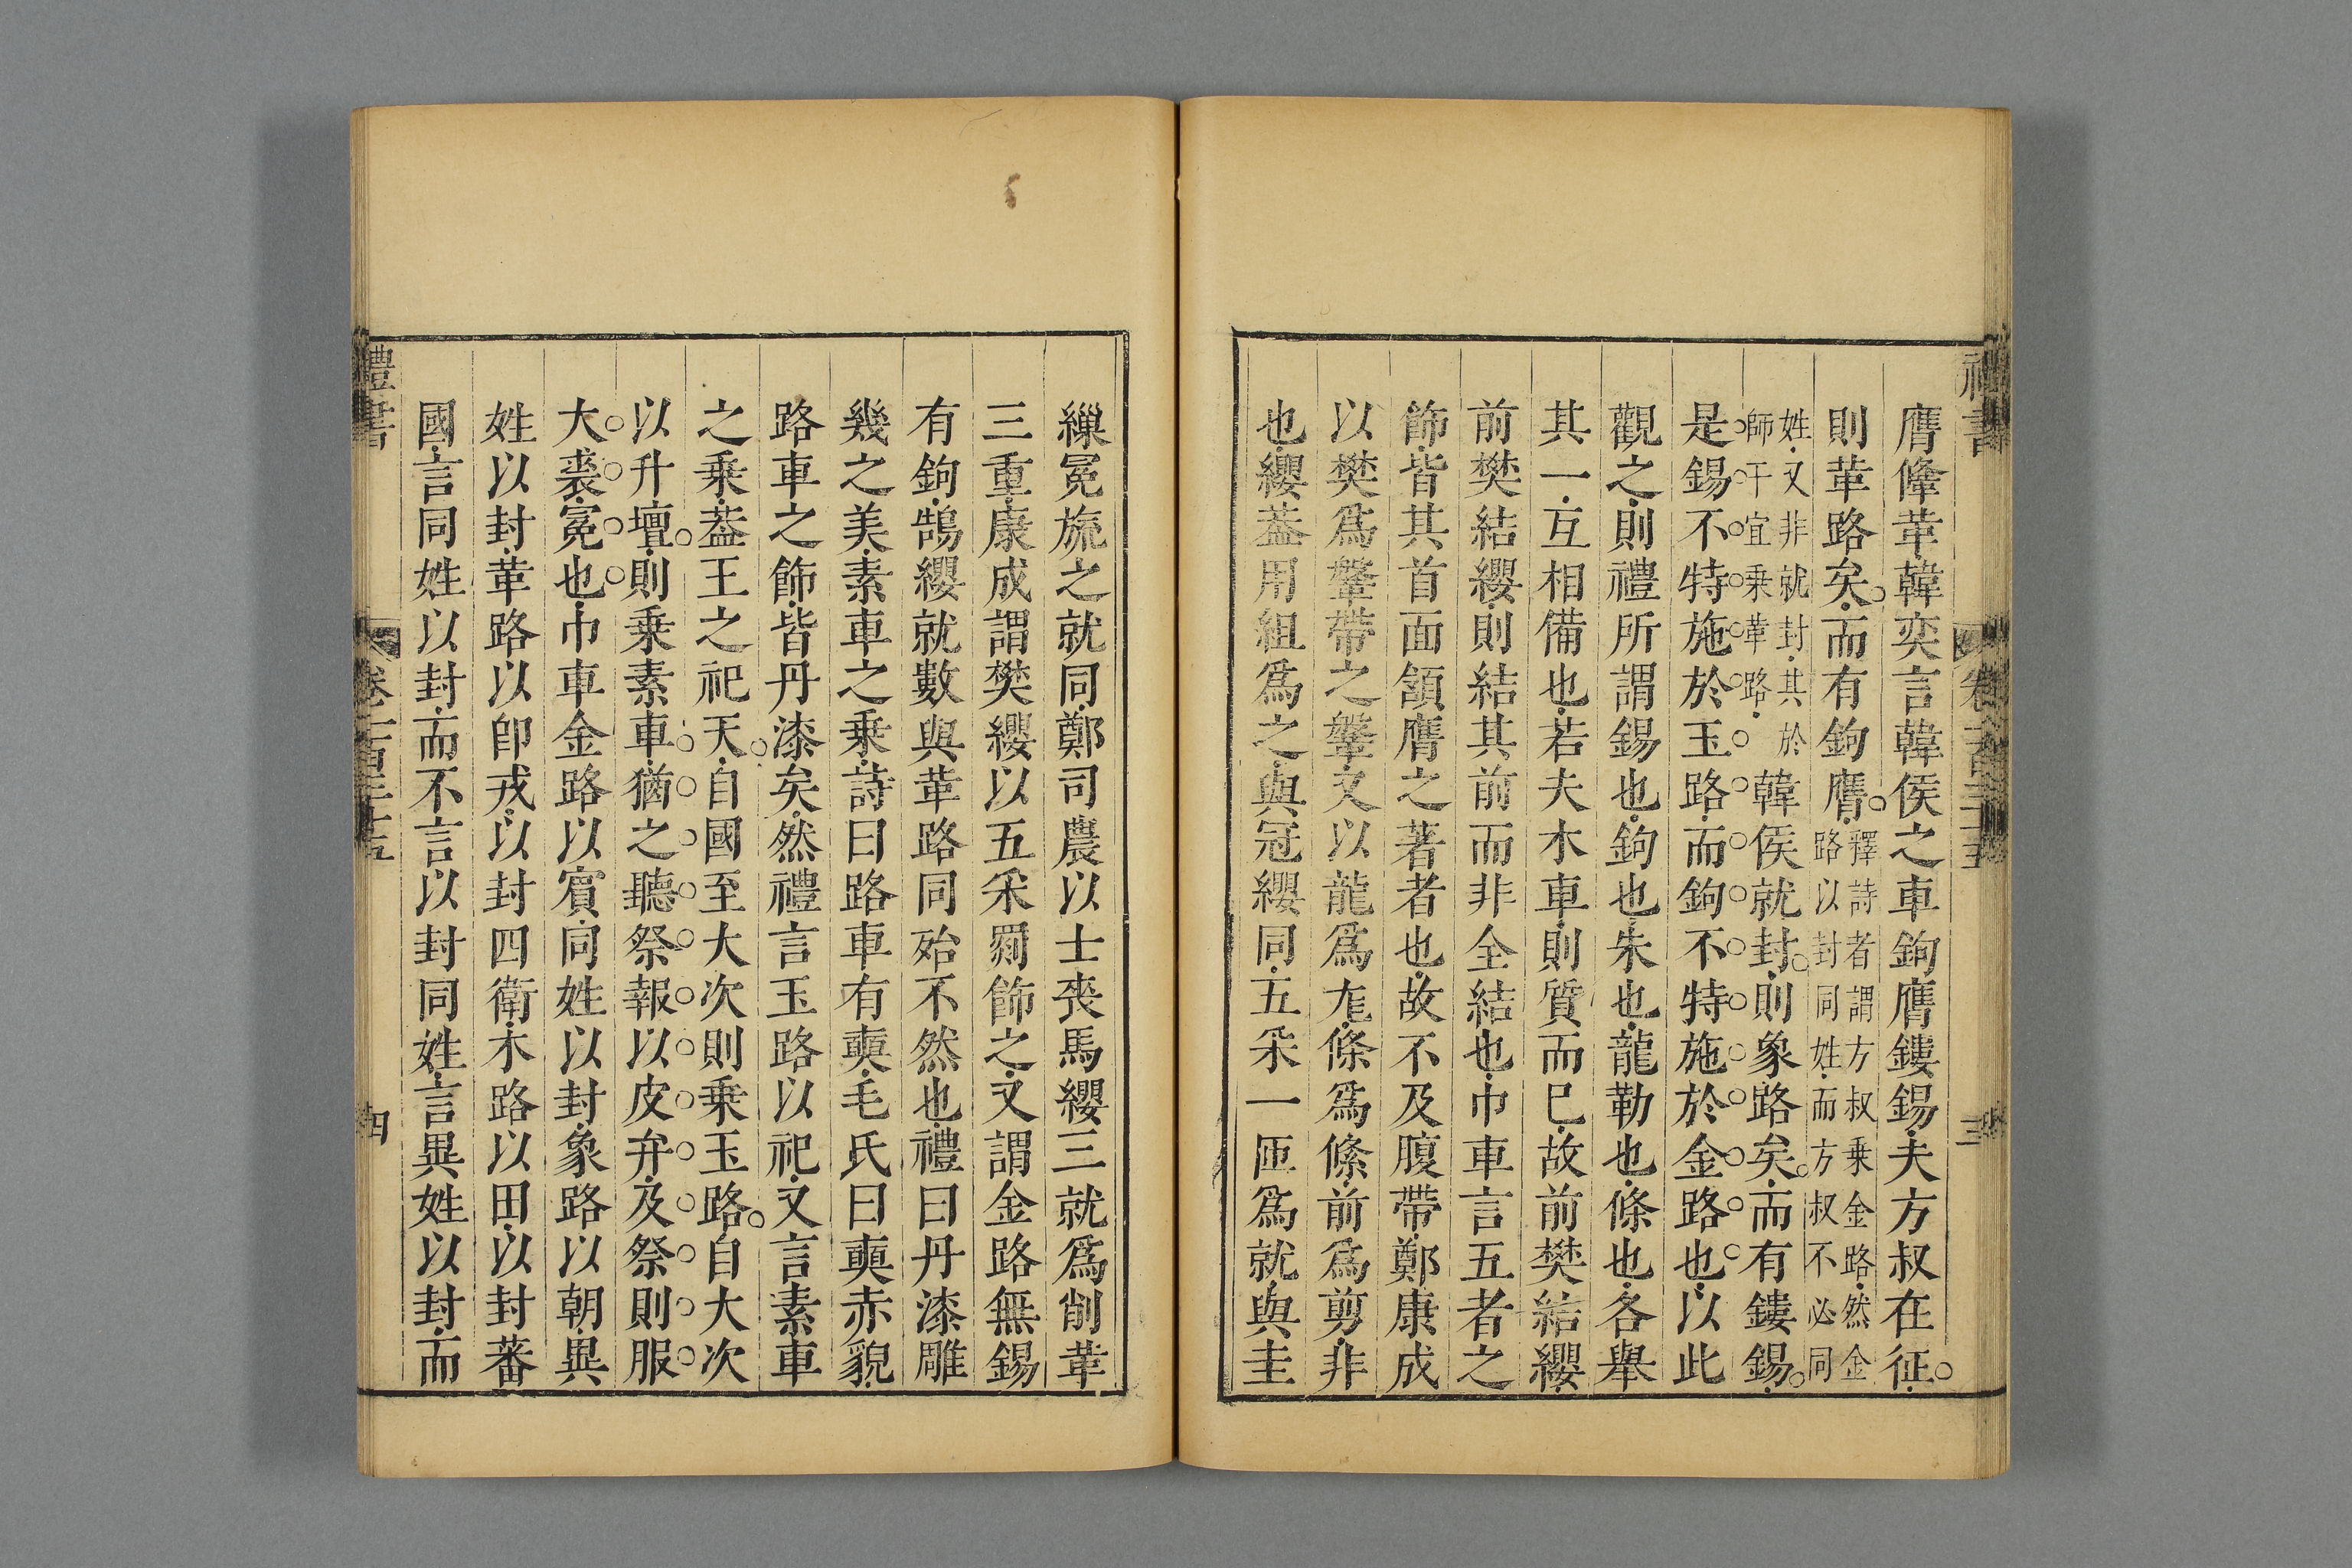 膺鞗革韓奕言韓侯之車鉤膺鏤錫夫方叔在征
則革路矣而有鉤膺釋詩者謂方叔乗金路然金路以封同姓而方叔不必同
姓又非就封其於師干宜乗革路韓侯就封則象路矣而有鏤錫
是錫不特施於玉路而鉤不特施於金路也以此
觀之則禮所謂錫也鉤也朱也龍勒也條也各舉
其一互相備也若夫木車則質而已故前樊結纓
前樊結纓則結其前而非全結也巾車言五者之
飾皆其首面頷膺之著者也故不及腹帶鄭康成
以樊爲鞶帶之鞶文以龍爲尨條爲絛前爲剪非
也纓葢用組爲之與冠纓同五采一匝爲就與圭
繅冕旒之就同鄭司農以士喪馬纓三就爲削革
三重康成謂樊纓以五采罽飾之又謂金路無錫
有鉤鵠纓就數與革路同殆不然也禮曰丹漆雕
幾之美素車之乗詩曰路車有奭毛氏曰奭赤貌
路車之飾皆丹漆矣然禮言玉路以祀又言素車
之乗葢王之祀天自國至大次則乗玉路自大次
以升壇則乗素車猶之聽祭報以皮弁及祭則服
大裘冕也巾車金路以賔同姓以封象路以朝異
姓以封革路以卽戎以封四衛木路以田以封蕃
國言同姓以封而不言以封同姓言異姓以封而
禮書
卷一百三十五
四